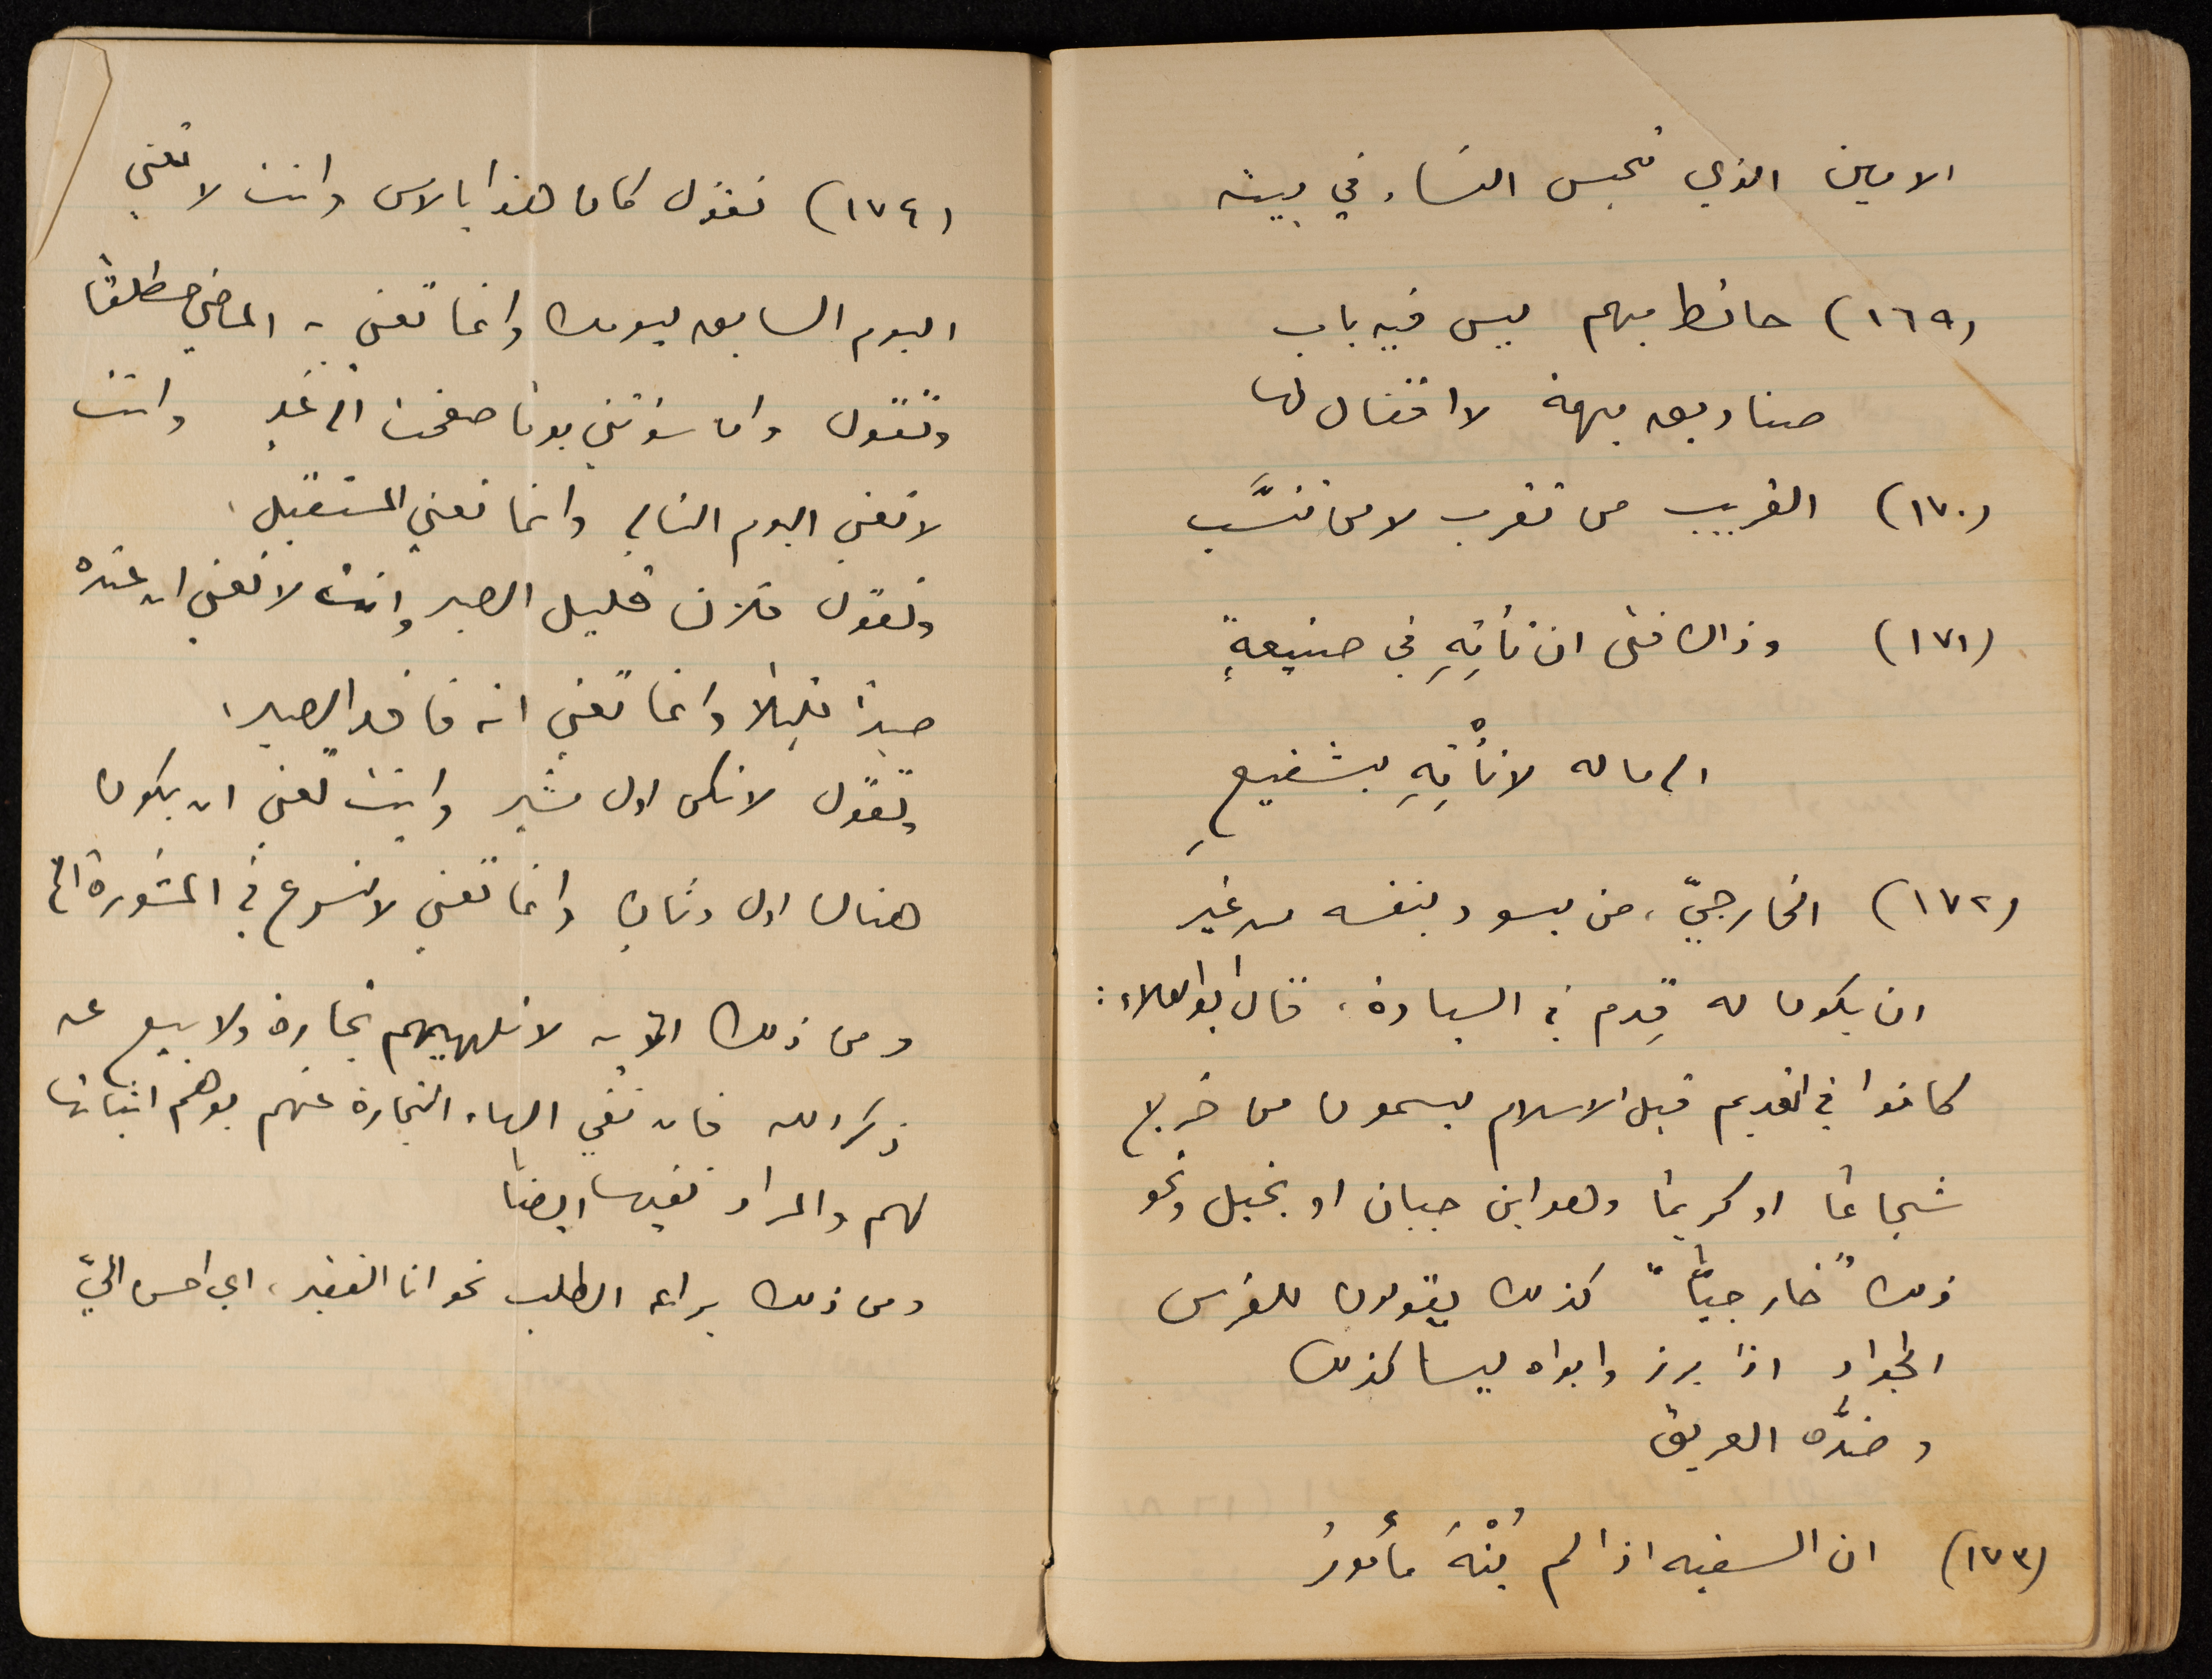 الامين الذي تحبس النساء في بيته
(١٦٩) حائط مبهم ليس فيه باب
صناديق مبهمة لا اقفال لها
(١٧٠) القريب من تقرب لا من تنسَّب
(١٧١) وذاك فتى ان تأتِهِ في صنيعةٍ
الى ماله لا تأْتِهِ بشفيعِ
(١٧٢) الخارجيّ، من يسود بنفسه من غير
ان يكون له قِدم في السيادة، قال ابو العلاء:
كانوا في القديم قبل الاسلام يسمون من خرج
شجاعًا او كريمًا وهو ابن جبان او بخيل ونحو
ذلك "خارجيًّا" كذلك يقولون للفرس
الجواد اذا برز وابواه ليسا كذلك
وضدُّه العريق
(١٧٣) ان السفيه اذا لم يُنْهَ مأمورُ
(١٧٤) تقول كان هذا بالامس وانت لا تعني
اليوم السابق ليومك وانما تعني به الماضي مطلقًا
وتقول وان سؤتني يومًا صفحت الى غدٍ وانت
لا تعني اليوم التالي وانما تعني المستقبل،
وتقول فلان قليل الصبر وانت لا تعني ان عنده
صبرًا قليلًا وانما تعني انه فاقد الصبر،
وتقول لا تكن اول مشير وانت تعني ان يكون
هناك اول وثانٍ وانما تعني لا تسرع في المشورة الخ
ومن ذلك الآية لا تلهيهم تجارة ولا بيع عن
ذكر الله فان نفي الهاء التجارة عنهم يوهم اثباتها
لهم والمراد نفيها ايضًا
ومن ذلك براعة الطلب نحو انا الفقير، اي احسن اليّ